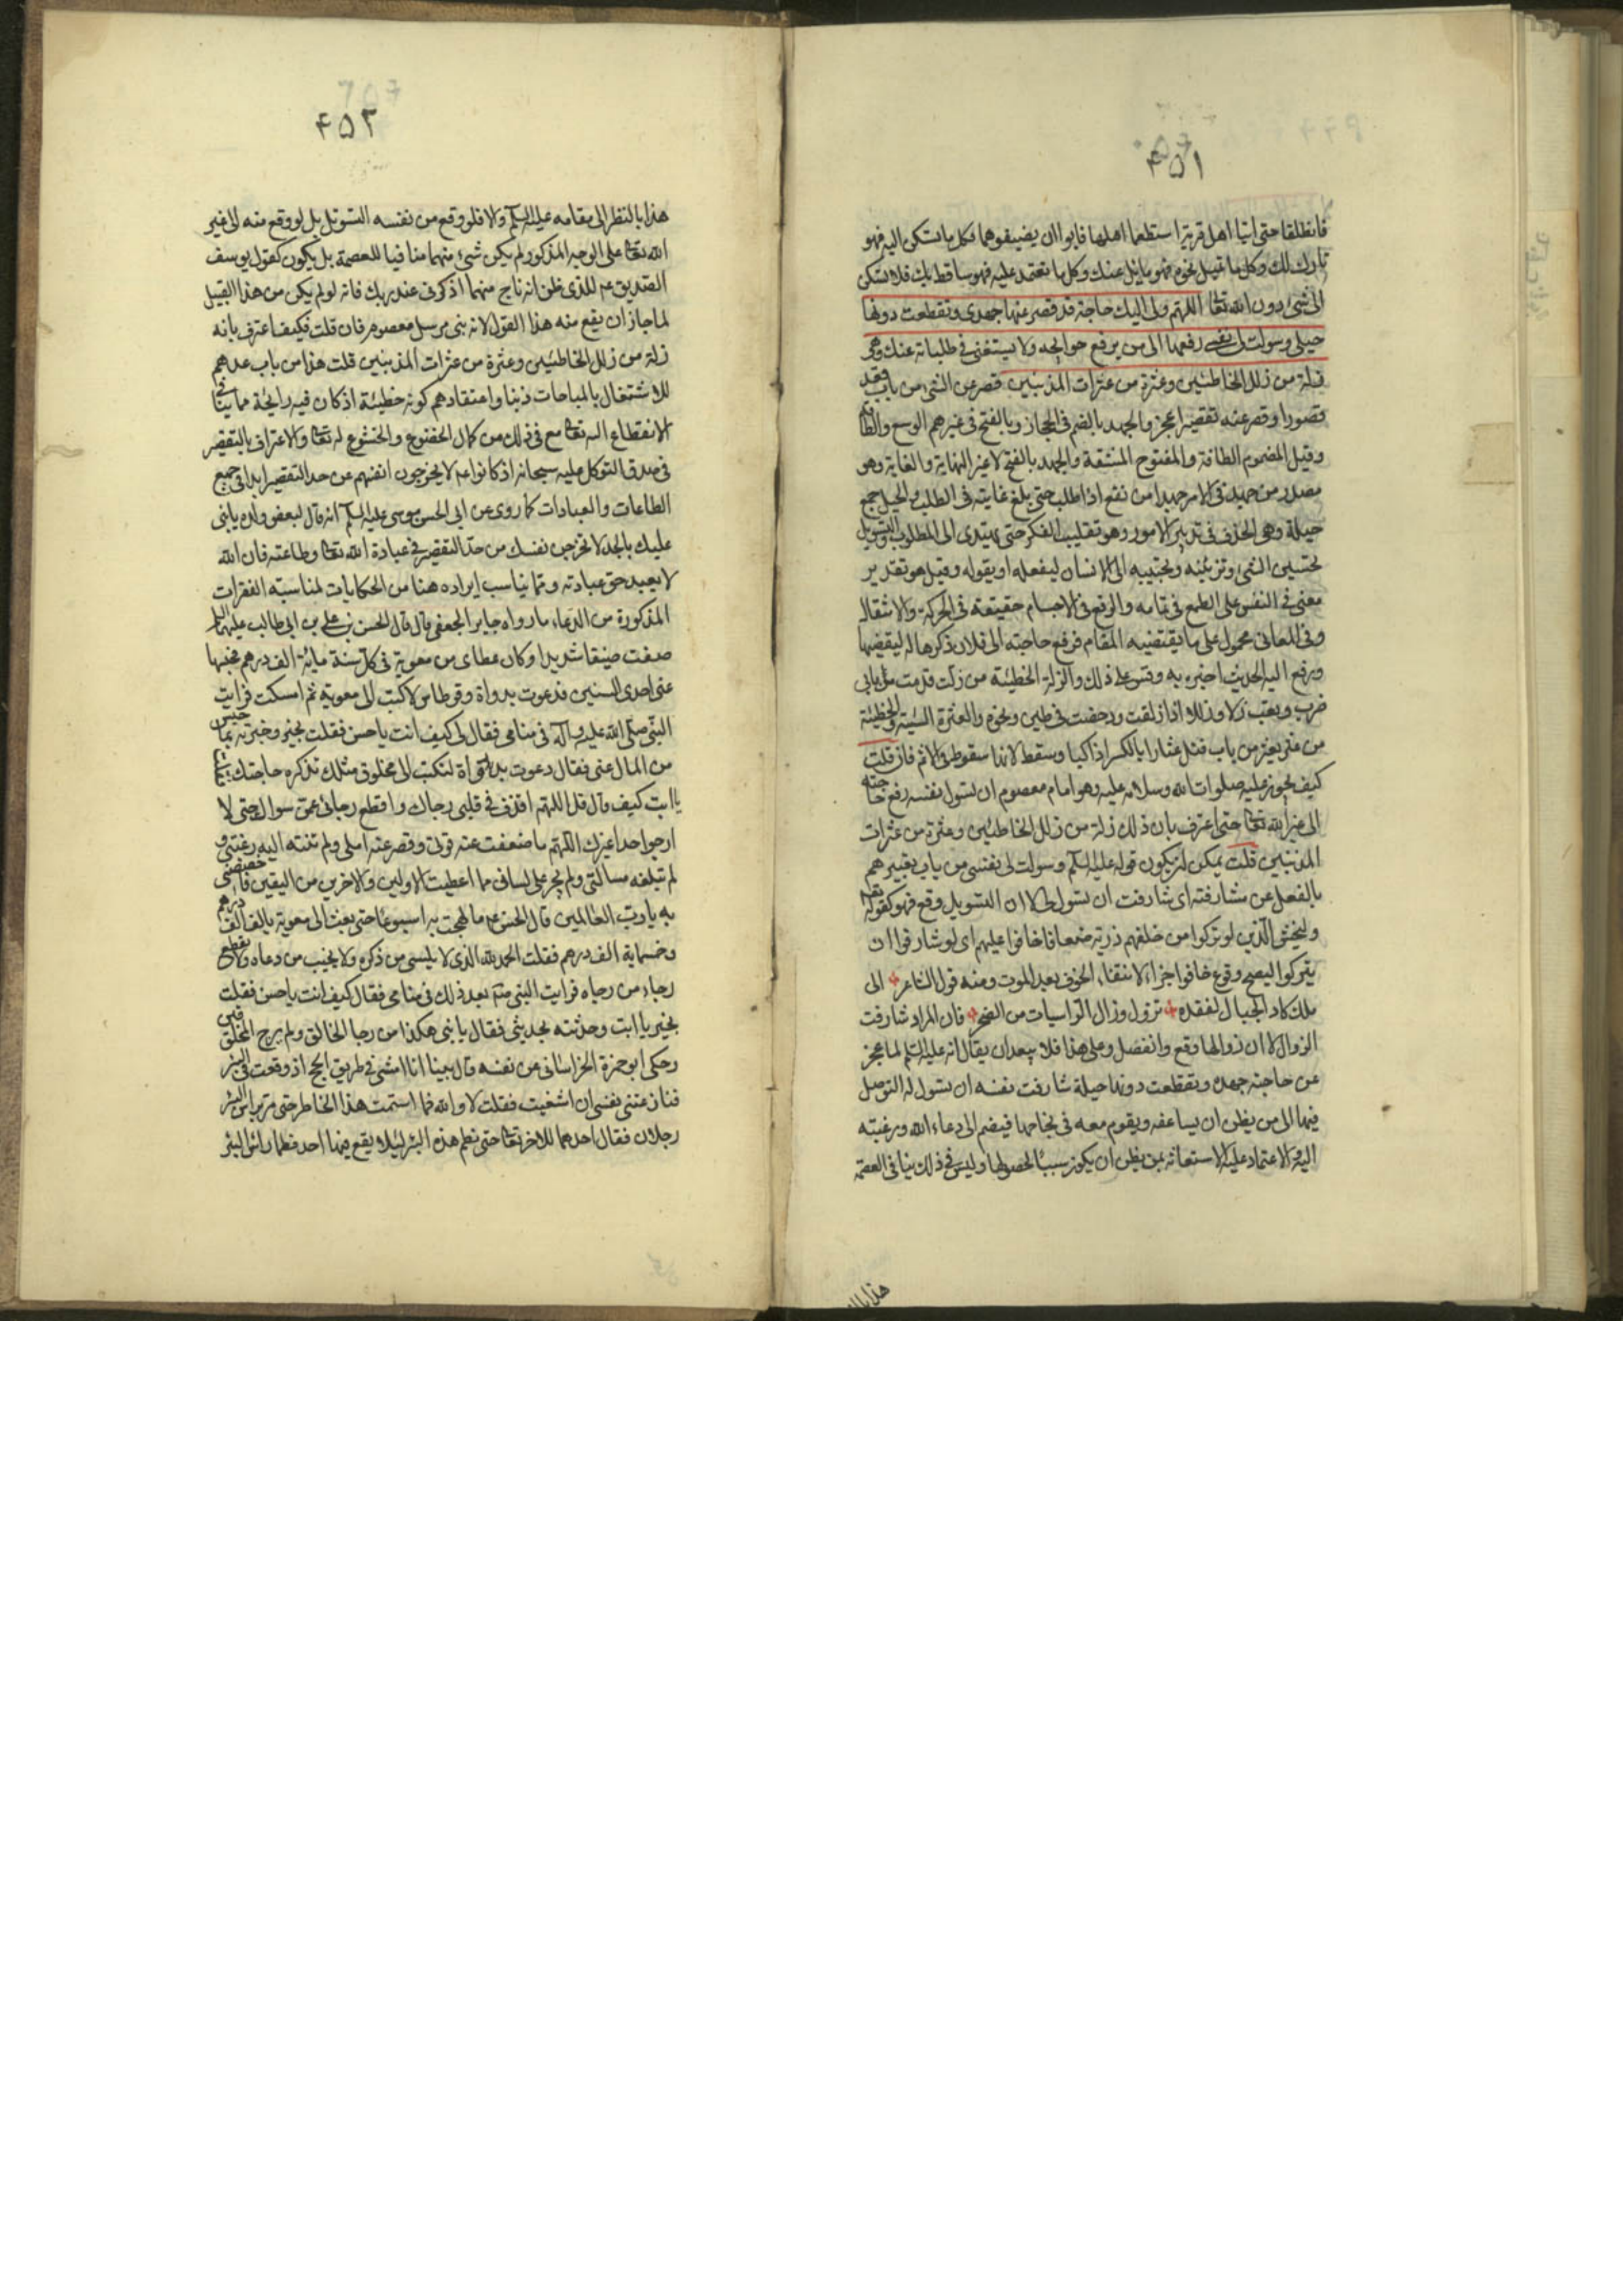 ۴۵۱
فانطلقا حتى اتيا اهل قرية استطعما اهلها فابوا ان يضيفوهما فكل ما تتكئ اليه فهو
تارك لك وكل ما تميل نحوه فهو مايل عنك وكل ما تعتمد عليه فهو ساقط بك فلا تتكئ
الى شئ دون الله تعا اللهم ولى اليك حاجة قد قصر عنها جهدى وتقطعت دونها
حيلى وسولت لى نفسى رفعها الى من يرفع حوائجه ولا يستغنى فى طلباته عنك وهى
زلة من زلل الخاطئين وعثرة من عثرات المذنبين قصر عن الشئ من باب قعد
قصورا وقصر عنه تقصيرا عجز والجهد بالضم فى الحجاز وبالفتح فى غيرهم الوسع والطاقة
وقيل المضموم الطاقة والمفتوح المشقة والجهد بالفتح لا غير النهاية والغاية وهو
مصدر من جهد فى الامر جهدا من نفع اذا طلب حتى بلغ غايته فى الطلب والحيل جمع
حيلة وهى الحذق فى تدبير الامور وهو تقليب الفكر حتى يهتدى الى المطلوب والتسويل
تحسين الشئ وتزيينه وتحبيبه الى الانسان ليفعله او يقوله وقيل هو تقدير
معنى فى النفس على الطمع فى تمامه والرفع فى الاجسام حقيقة فى الحركة والانتقال
وفى المعانى محمول على ما يقتضيه المقام فرفع حاجته الى فلان ذكرها له ليقضيها
ورفع اليه الحديث اخبره به وقس على ذلك والزلة الخطيئة من زلت قدمه من بابى
ضرب وتعب زلا وزللا اذا زلقت ودحضت فى طين ونحوه والعثرة السيئة والخطيئة
من عثر يعثر من باب قتل عثارا بالكسر اذا كبا وسقط لانها سقوط فى الاثم فان قلت
كيف يجوز عليه صلوات الله وسلامه عليه وهو امام معصوم ان تسول نفسه رفع حاجته
الى غير الله تعا حتى اعترف بان ذلك زلة من زلل الخاطئين وعثرة من عثرات
المذنبين قلت يمكن ان يكون قوله عليه السلم وسولت لى نفسى من باب تعبيرهم
بالفعل عن مشارفته اى شارفت ان تسول لى لا ان التسويل وقع فهو كقوله تعا
وليخش الذين لو تركوا من خلفهم ذرية ضعافا خافوا عليهم اى لو شارفوا ان
يتركوا ليصح وقوع خافوا جزاء لانتفاء الخوف بعد الموت ومنه قول الشاعر الى
ملك كاد الجبال لفقده تزول وزال الراسيات من الصخر فان المراد شارفت
الزوال لا ان زوالها وقع وانفصل وعلى هذا فلا يبعد ان يقال انه عليه السلم لما عجز
عن حاجته جهده وتقطعت دونها حيلة شارفت نفسه ان تسول له التوصل
فيها الى من يظن ان يساعفه ويقوم معه فى نجاحها فيضم الى دعاء الله ورغبته
اليه والاعتماد عليه الاستعانة بمن يظن ان يكون سببا لحصولها وليس فى ذلك ينافى العصمة
هذا بالـ
۴۵۲
هذا بالنظر الى مقامه عليه السلم والا فلو وقع من نفسه التسويل بل لو وقع منه الى غير
الله تعا على الوجه المذكور لم يكن شئ منهما منافيا للعصمة بل يكون كقول يوسف
الصديق عم للذى ظن انه ناج منهما اذكرنى عند ربك فانه لو لم يكن من هذا القبيل
لما جاز ان يقع منه هذا القول لانه نبى مرسل معصوم فان قلت فكيف اعترف بانه
زلة من زلل الخاطئين وعثرة من عثرات المذنبين قلت هذا من باب عدهم
للاشتغال بالمباحات ذنبا واعتقادهم كونه خطيئة اذ كان فيه رايحة ما ينافى
الانقطاع اليه تعا مع فى ذلك من كمال الخضوع والخشوع له تعا والاعتراف بالتقصير
فى صدق التوكل عليه سبحانه اذ كانوا عم لا يخرجون انفسهم عن حد التقصير ابدا فى جميع
الطاعات والعبادات كما روى عن ابى الحسن موسى عليه السلم انه قال لبعض ولده يا بنى
عليك بالجد لا تخرجن نفسك من حد التقصير فى عبادة الله تعا وطاعته فان الله
لا يعبد حق عبادته ومما يناسب ايراده هنا من الحكايات لمناسبته الفقرات
المذكورة من الدعاء ما رواه جابر الجعفى قال قال الحسن بن على بن ابى طالب عليهما السلم
ضقت ضيقا شديدا وكان عطاى من معوية فى كل سنة ماية الف درهم فحبسها
عنى احدى السنين فدعوت بدواة وقرطاس لاكتب الى معوية ثم امسكت فرايت
النبى صلى الله عليه وآله فى منامى فقال لى كيف انت يا حسن فقلت بخير وخبرته بما حبس
من المال عنى فقال دعوت بدواة لتكتب الى مخلوق مثلك تذكره حاجتك
يا ابت كيف قال قل اللهم اقذف فى قلبى رجاك واقطع رجائى عمن سواك حتى لا
ارجوا احدا غيرك اللهم ما ضعفت عنه قوتى وقصر عنه املى ولم تنته اليه رغبتى و
لم تبلغه مسالتى ولم يجر على لسانى مما اعطيت الاولين والاخرين من اليقين فاخصصنى
به يا رب العالمين قال الحسن عم ما لهجت به اسبوعا حتى بعث الى معوية بالف الف درهم
وخسماية الف درهم فقلت الحمد لله الذى لا ينسى من ذكره ولا يخيب من دعاه ولا يقطع
رجاء من رجاه فرايت النبى صلم بعد ذلك فى منامى فقال كيف انت يا حسن فقلت
بخير يا ابت وحدثته بحديثى فقال يا بنى هكذا من رجا الخالق ولم يرج المخلوقين
وحكى ابو حمزة الخراسانى عن نفسه قال بينا انا امشى فى طريق الحج اذ وقعت فى بئر
فنازعتنى نفسى ان استغيث فقلت لا والله فما استتمت هذا الخاطر حتى مر براس البئر
رجلان فقال احدهما للاخر تعا حتى نطم هذه البئر لئلا يقع فيها احد فطما راس البئر